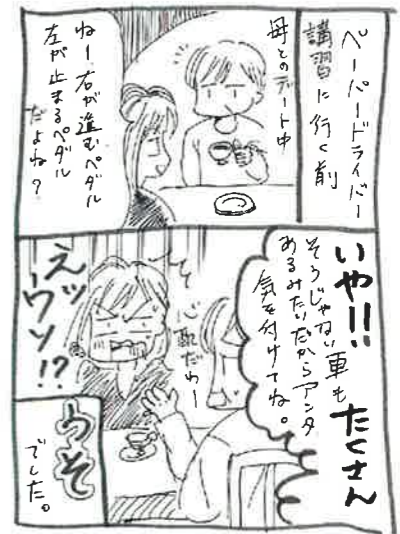 ペーパードライバー
講習に行く前
母とのデート中
ねー右が進むペダル
左が止まるペダル
だよね？
いや!!
そうじゃない車も
たくさん
あるみたいだからアンタ
気を付けてね。
心配だわー
えッ
ウソ!?
うそ
でした。